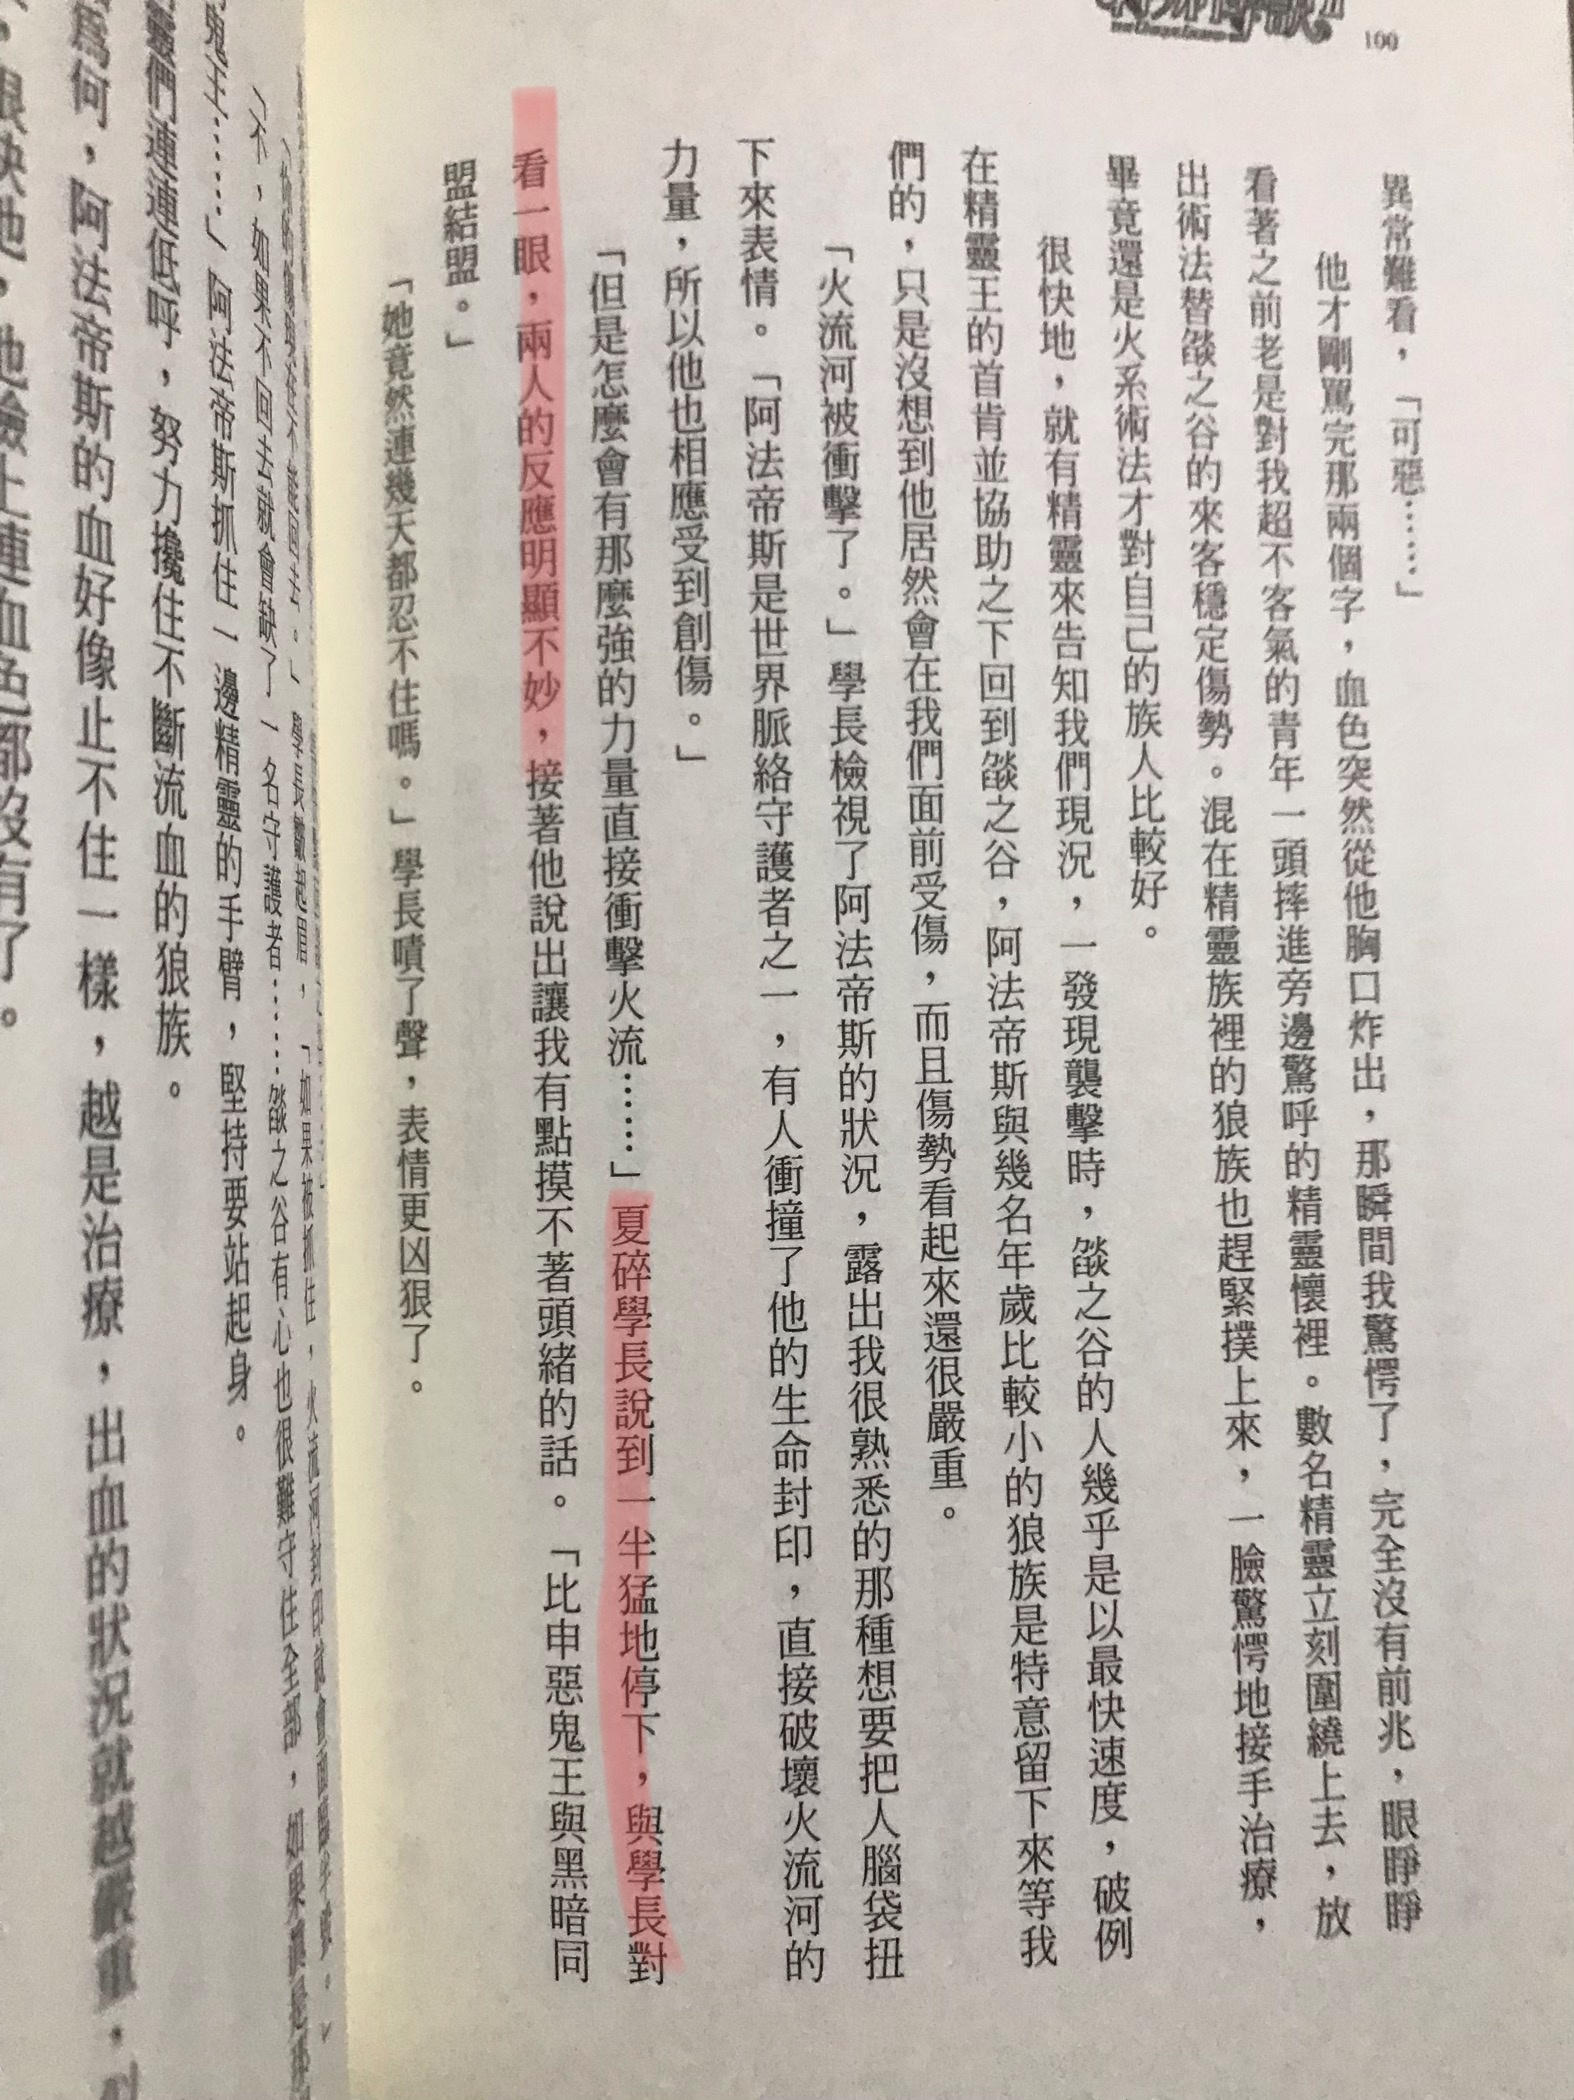 100
異常難看，「可惡……」
他才剛罵完那兩個字，血色突然從他胸口炸出，那瞬間我驚愕了，完全沒有前兆，眼睜睜
看著之前老是對我超不客氣的青年一頭摔進旁邊驚呼的精靈懷裡。數名精靈立刻圍繞上去，放
出術法替燄之谷的來客穩定傷勢。混在精靈族裡的狼族也趕緊撲上來，一臉驚愕地接手治療，
畢竟還是火系術法才對自己的族人比較好。
很快地，就有精靈來告知我們現況，一發現襲擊時，燄之谷的人幾乎是以最快速度，破例
在精靈王的首肯並協助之下回到燄之谷，阿法帝斯與幾名年歲比較小的狼族是特意留下來等我
們的，只是沒想到他居然會在我們面前受傷，而且傷勢看起來還很嚴重。
「火流河被衝擊了。」學長檢視了阿法帝斯的狀況，露出我很熟悉的那種想要把人腦袋扭
下來表情。「阿法帝斯是世界脈絡守護者之一，有人衝撞了他的生命封印，直接破壞火流河的
力量，所以他也相應受到創傷。」
「但是怎麼會有那麼強的力量直接衝擊火流……」夏碎學長說到一半猛地停下，與學長對
看一眼，兩人的反應明顯不妙，接著他說出讓我有點摸不著頭緒的話。「比申惡鬼王與黑暗同
盟結盟。」
「她竟然連幾天都忍不住嗎。」學長嘖了聲，表情更凶狠了。
「不，如果不回去就會缺了一名守護者……燄之谷有心也很難守住全部，如果
鬼王……」阿法帝斯抓住一邊精靈的手臂，堅持要站起身。
靈們連連低呼，努力攙住不斷流血的狼族。
為何，阿法帝斯的血好像止不住一樣，越是治療，出血的狀況就越嚴重，
，很快地，他臉上連血色都沒有了。